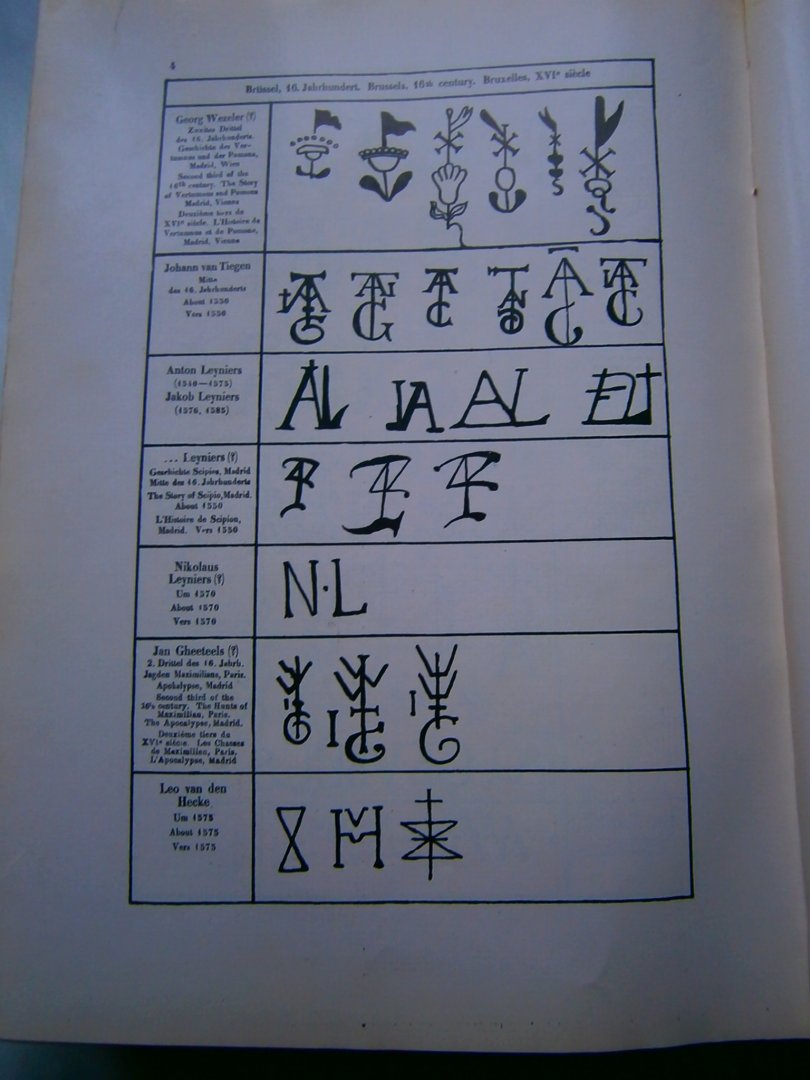 4
Brüssel, 16. Jahrhundert. Brussels, 16th century. Bruxelles, XVIe siècle
Georg Wezeler (?)
Zweites Drittel
des 16. Jahrhunderts.
Geschichte des Ver-
tumnus und der Pomona,
Madrid, Wien
Second third of the
16th century. The Story
of Vertumnus and Pomona
Madrid, Vienna
Deuxième tiers du
XVIe siècle. L'Histoire de
Vertumnus et de Pomone,
Madrid, Vienne
Johann van Tiegen
Mitte
des 16. Jahrhunderts
About 1550
Vers 1550
Anton Leyniers
(1540—1575)
Jakob Leyniers
(1576, 1585)
AL IA AL
... Leyniers (?)
Geschichte Scipios, Madrid
Mitte des 16. Jahrhunderts
The Story of Scipio, Madrid.
About 1550
L'Histoire de Scipion,
Madrid. Vers 1550
Nikolaus
Leyniers (?)
Um 1570
About 1570
Vers 1570
N·L
Jan Gheeteels (?)
2. Drittel des 16. Jahrh.
Jagden Maximilians, Paris.
Apokalypse, Madrid
Second third of the
16th century. The Hunts of
Maximilian, Paris.
The Apocalypse, Madrid.
Deuxième tiers du
XVIe siècle. Les Chasses
de Maximilien, Paris.
L'Apocalypse, Madrid
Leo van den
Hecke
Um 1575
About 1575
Vers 1575